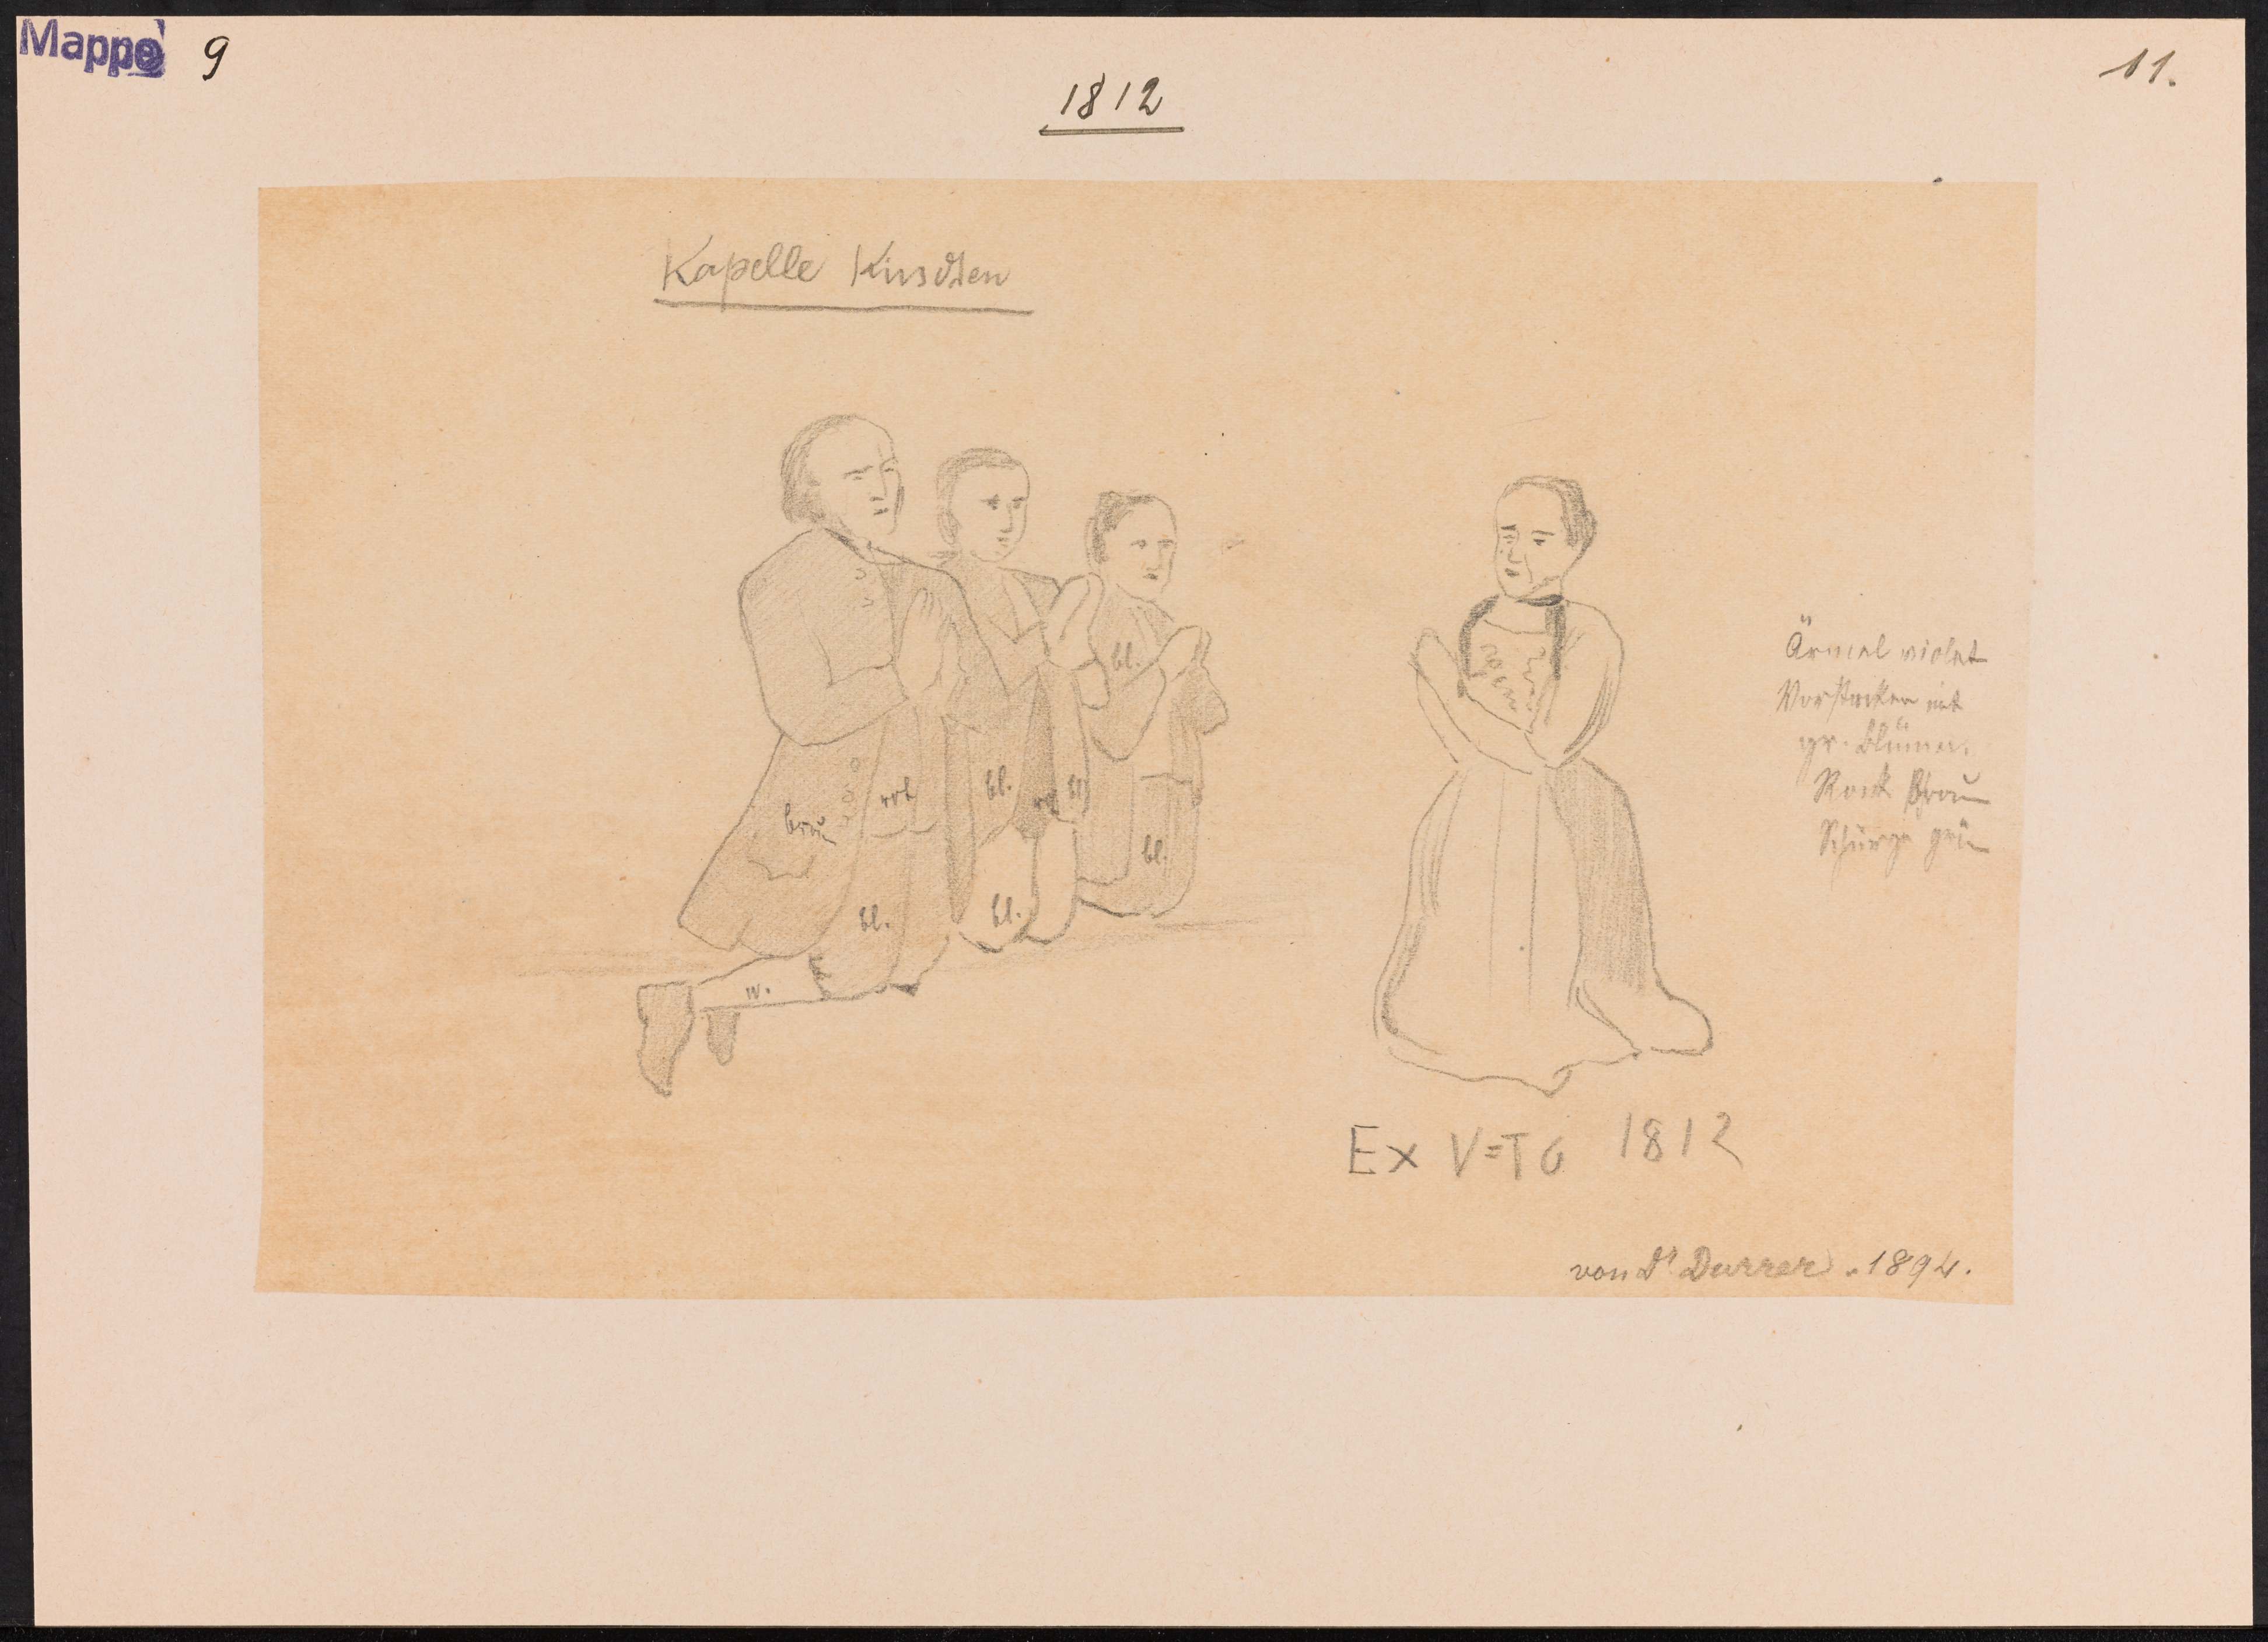 Mappe 9
11.
1812
Kapelle Kirschten
bl.
rot
bl.
bl.
braun
bl.
bl.
bl.
w.
Ärmel violet
Vorstecker mit
gr. Blumen.
Rock Braun
Schürze grün
Ex V=TO 1812
von Dr Durrer. 1894.